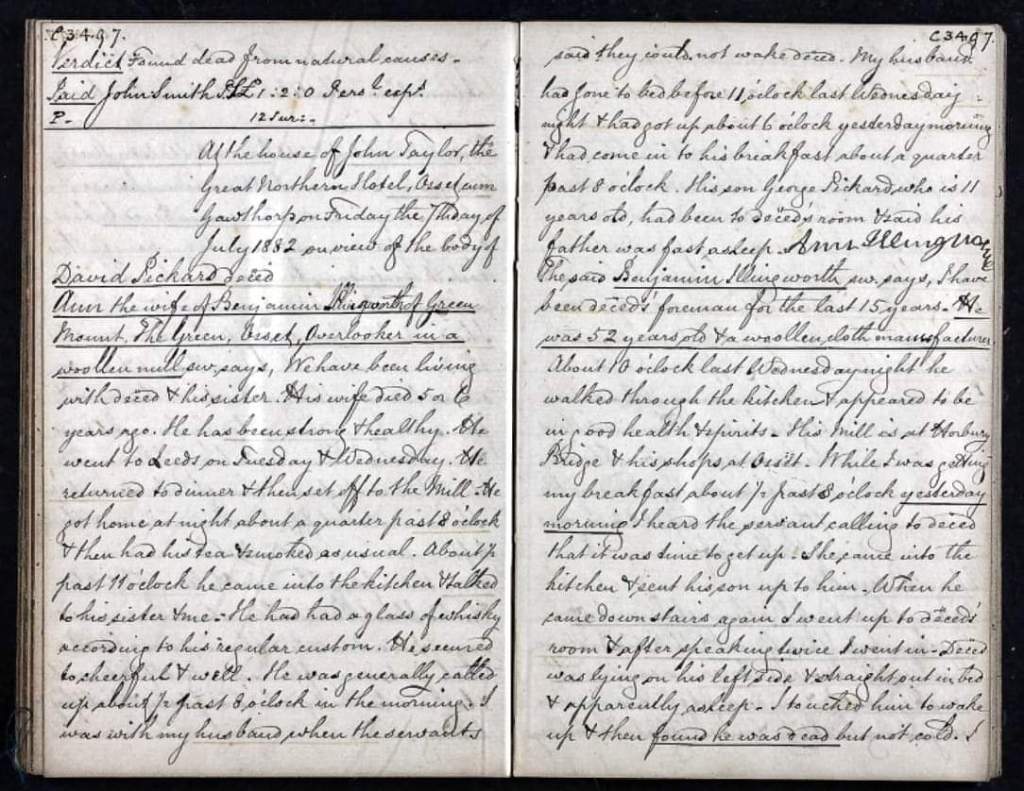 C3497.
Verdict Found dead from natural causes.
Paid John Smith P.C. £1:2:0 Pers.l exps.
P- 12 Jurs:-
At the house of John Taylor, the
Great Northern Hotel, Ossett cum
Gawthorp on Friday the 7th day of
July 1882 on view of the body of
David Pickard deced
Ann the wife of Benjamin Illingworth of Green
Mount, The Green, Ossett, Overlooker in a
woollen mill sw. says, We have been living
with deced & his sister. His wife died 5 or 6
years ago. He has been strong & healthy. He
went to Leeds on Tuesday & Wednesday. He
returned to dinner & then set off to the Mill. He
got home at night about a quarter past 8 o'clock
& then had his tea & smoked as usual. About ½
past 11 o'clock he came into the kitchen & talked
to his sister & me. He had had a glass of whisky
according to his regular custom. He seemed
to cheerful & well. He was generally called
up about ½ past 8 o'clock in the morning. I
was with my husband when the servants
C3497.
said they could not wake deced. My husband
had gone to bed before 11 o'clock last Wednesday
night & had got up about 6 o'clock yesterday morning
& had come in to his breakfast about a quarter
past 8 o'clock. His son George Pickard, who is 11
years old, had been to deced's room & said his
father was fast asleep. Ann Illingworth
The said Benjamin Illingworth sw. says, I have
been deced's foreman for the last 15 years. He
was 52 years old & a woollen cloth manufacturer
About 10 o'clock last Wednesday night he
walked through the kitchen & appeared to be
in good health & spirits. His Mill is at Horbury
Bridge & his shops at Ossett. While I was getting
my breakfast about ½ past 8 o'clock yesterday
morning I heard the servant calling to deced
that it was time to get up. She came into the
kitchen & sent his son up to him. When he
came down stairs again I went up to deced's
room & after speaking twice I went in. Deced
was lying on his left side & straight out in bed
& apparently asleep. I touched him to wake
up & then found he was dead but not cold. I